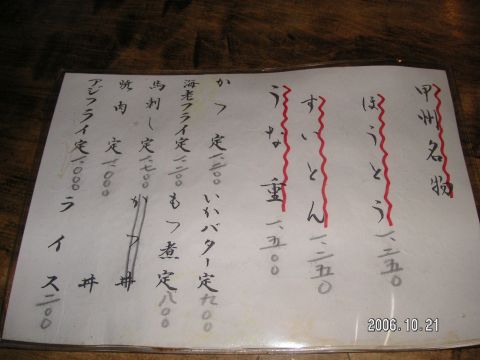 甲州名物
ほうとう 一、二五〇
すいとん 一、二五〇
うな重 一、五〇〇
かつ定 一、二〇〇
いかバター定 九〇〇
海老フライ定 一、二〇〇
もつ煮定 八〇〇
馬刺し定 一、七〇〇
かつ丼
焼肉定 一、〇〇〇
丼
アジフライ定 一、〇〇〇
ライス 二〇〇
2006.10.21